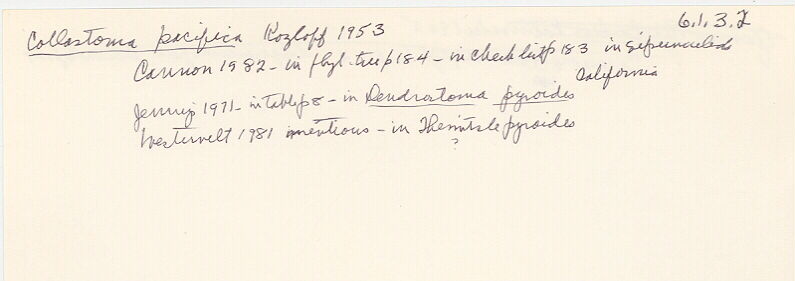 6.1.3.2
Collastoma pacifica Kozloff 1953
Cannon 1982 - in phyl. tree p 184 - in check list p 183 in sipunculid
California
Jennings 1971 - in table p 8 - in Dendrostoma pyroides
Westervelt 1981 mentions - in Themiste pyroides
?